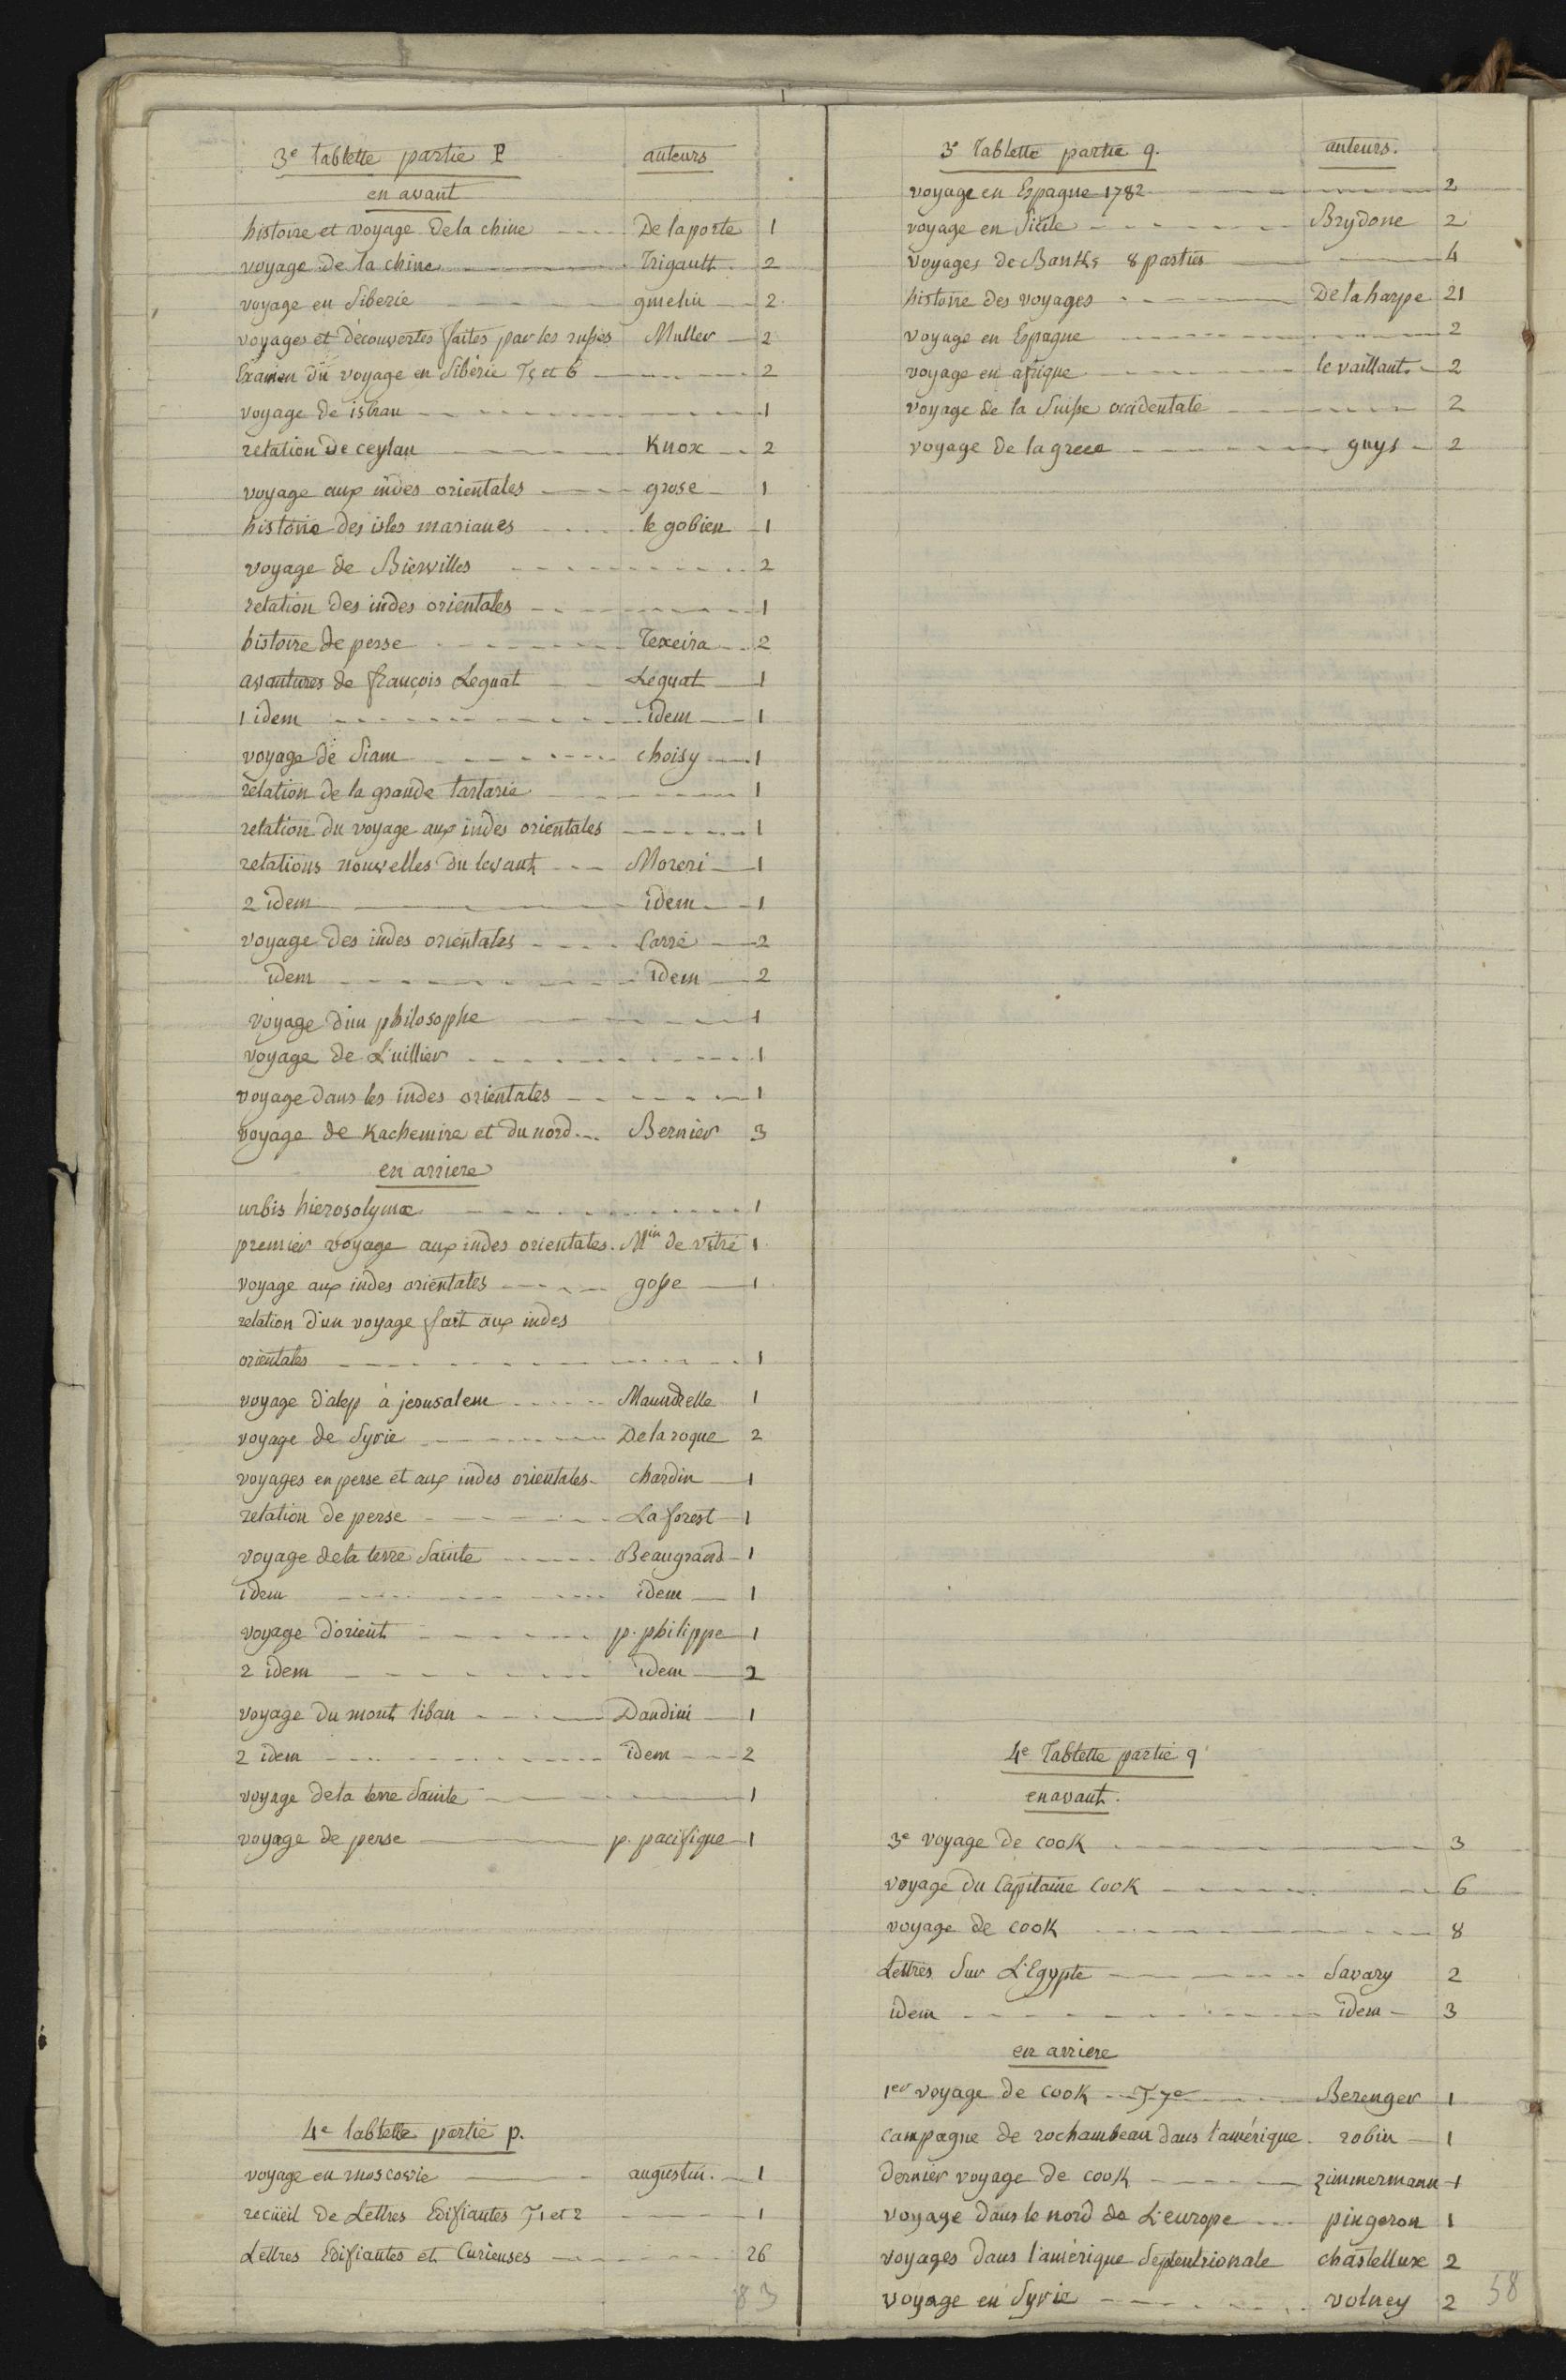 3e tablette partie P auteurs
en avant
histoire et voyage de la chine Delaporte 1
voyage de la chine Trigault 2
voyage en Siberie gmelin 2
voyages et découvertes faites par les russes Muller 2
Examen du voyage en Siberie T 5 et 6 2
voyage de isbran 1
relation de ceylan Knox 2
voyage aux indes orientales grose 1
histoire des isles marianes le gobien 1
voyage de Biervilles 2
relation des indes orientales 1
histoire de perse Texeira 2
avantures de françois Leguat Léguat 1
1 idem idem 1
voyage de Siam choisy 1
relation de la grande tartarie 1
relation du voyage aux indes orientales 1
relations nouvelles du levant Moreri 1
2 idem idem 1
voyage des indes orientales Carré 2
idem idem 2
voyage d'un philosophe 1
voyage de L'uillier 1
voyage dans les indes orientales 1
voyage de Kachemire et du nord Bernier 3
en arriere
urbis hierosolymæ 1
premier voyage aux indes orientales Min de vitré 1
voyage aux indes orientales gosse 1
relation d'un voyage fait aux indes
orientales 1
voyage d'alep à jerusalem Maundrelle 1
voyage de Syrie Delaroque 2
voyages en perse et aux indes orientales chardin 1
relation de perse La forest 1
voyage de la terre Sainte Beaugrand 1
idem idem 1
voyage d'orient p. philippe 1
2 idem idem 2
voyage du mont liban Dandini 1
2 idem idem 2
voyage de la terre Sainte 1
voyage de perse p. pacifique 1
4e tablette partie p.
voyage en moscovie augustin. 1
recüeil de Lettres Edifiantes T 1 et 2 1
Lettres Edifiantes et Curieuses 26
83
3e Tablette partie q. auteurs.
voyage en Espagne 1782 2
voyage en Sicile Brydone 2
voyages de Banks 8 parties 4
histoire des voyages De la harpe 21
voyage en Espagne 2
voyage en afrique le vaillant 2
voyage de la Suisse occidentale 2
voyage de la grece guys 2
4e Tablette partie q
en avant.
3e voyage de cook 3
voyage du Capitaine Cook 6
voyage de cook 8
Lettres Sur L'Egypte Savary 2
idem idem 3
en arriere
1er voyage de cook T 7e Berenger 1
campagne de rochambeau dans l'amérique robin 1
dernier voyage de cook zimmermann 1
voyage dans le nord de L'europe pingeron 1
voyages dans l'amérique Septentrionale chastellux 2
voyage en Syrie volney 2
58